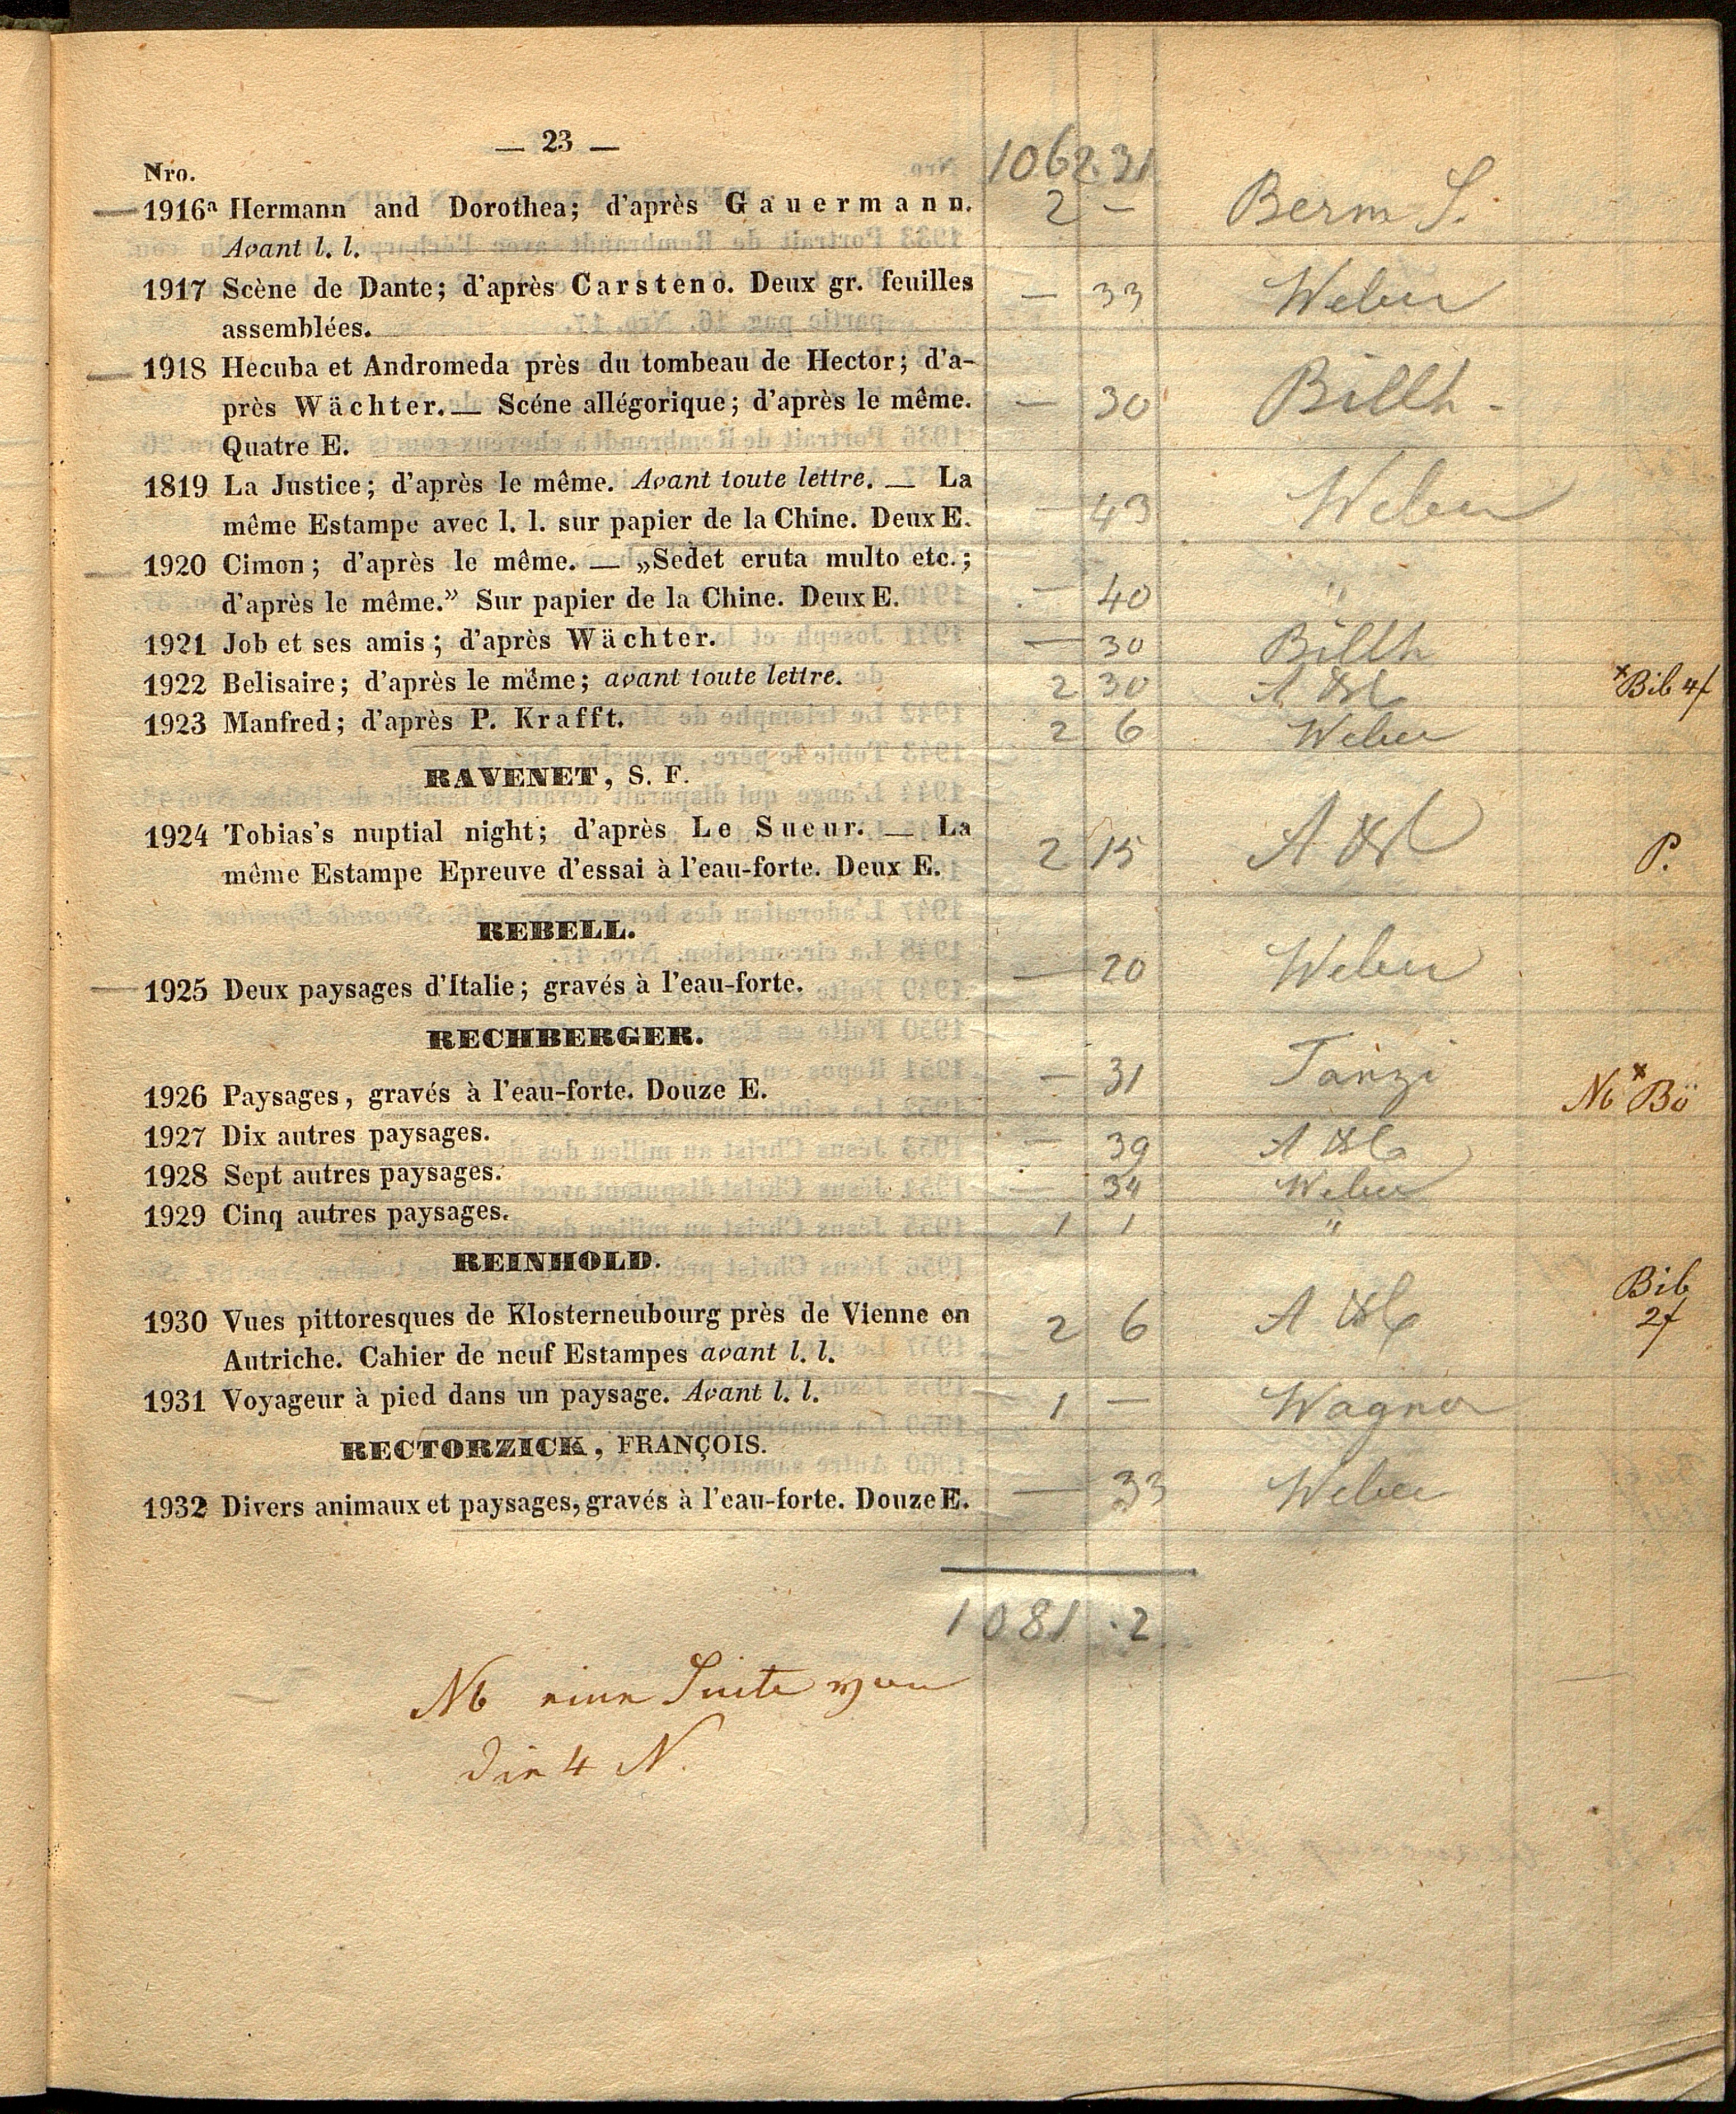 — 23 —
Nro. 1062 31
1916a Hermann and Dorothea; d'après Gauermann. 2 —
Avant l. l.
1917 Scène de Dante; d'après Carsteno. Deux gr. feuilles — 33 Weber
assemblées.
1918 Hecuba et Andromeda près du tombeau de Hector; d'a-
près Wächter. — Scéne allégorique; d'après le même. — 30 Billh -
Quatre E.
1819 La Justice; d'après le même. Avant toute lettre. — La
même Estampe avec l. l. sur papier de la Chine. Deux E. — 43 Weber
1920 Cimon; d'après le même. — „Sedet eruta multo etc.;
d'après le même.” Sur papier de la Chine. Deux E. — 40 "
1921 Job et ses amis; d'après Wächter. — 30 Billh
1922 Belisaire; d'après le même; avant toute lettre. 2 30 A *Bib 4f
1923 Manfred; d'après P. Krafft. 2 6 Weber
RAVENET, S. F.
1924 Tobias's nuptial night; d'après Le Sueur. — La
même Estampe Epreuve d'essai à l'eau-forte. Deux E. 2 15 A P.
REBELL.
1925 Deux paysages d'Italie; gravés à l'eau-forte. — 20 Weber
RECHBERGER.
1926 Paysages, gravés à l'eau-forte. Douze E. — 31 Tanzi Nb * Bö
1927 Dix autres paysages. — 39 A
1928 Sept autres paysages. — 34 Weber
1929 Cinq autres paysages. 1 1 "
REINHOLD.
1930 Vues pittoresques de Klosterneubourg près de Vienne en 2 6 A Bib
Autriche. Cahier de neuf Estampes avant l. l. 2f
1931 Voyageur à pied dans un paysage. Avant l. l. 1 — Wagner
RECTORZICK, FRANÇOIS.
1932 Divers animaux et paysages, gravés à l'eau-forte. Douze E. — 33 Weber
1081 . 2
Nb eine Suite von
die 4 N.